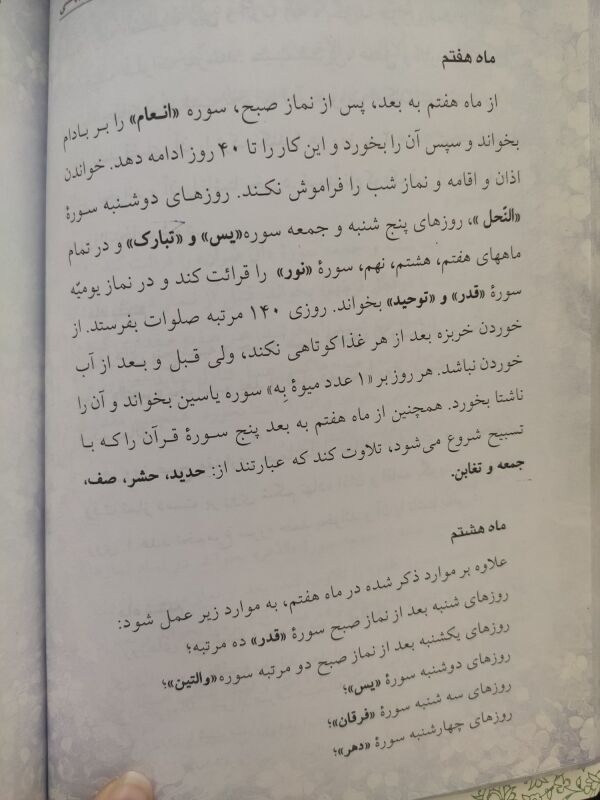 ماه هفتم
از ماه هفتم به بعد، پس از نماز صبح، سوره «انعام» را بر بادام
بخواند و سپس آن را بخورد و این کار را تا ۴۰ روز ادامه دهد. خواندن
اذان و اقامه و نماز شب را فراموش نکند. روزهای دوشنبه سورهٔ
«النّحل »، روزهای پنج شنبه و جمعه سوره«یس» و «تبارک» و در تمام
ماههای هفتم، هشتم، نهم، سورهٔ «نور» را قرائت کند و در نماز یومیّه
سورهٔ «قدر» و «توحید» بخواند. روزی ۱۴۰ مرتبه صلوات بفرستد. از
خوردن خربزه بعد از هر غذا کوتاهی نکند، ولی قبل و بعد از آب
خوردن نباشد. هر روز بر «۱ عدد میوهٔ بِه» سوره یاسین بخواند و آن را
ناشتا بخورد. همچنین از ماه هفتم به بعد پنج سورهٔ قرآن را که با
تسبیح شروع می‌شود، تلاوت کند که عبارتند از: حدید، حشر، صف،
جمعه و تغابن.
ماه هشتم
علاوه بر موارد ذکر شده در ماه هفتم، به موارد زیر عمل شود:
روزهای شنبه بعد از نماز صبح سورهٔ «قدر» ده مرتبه؛
روزهای یکشنبه بعد از نماز صبح دو مرتبه سوره«والتین»؛
روزهای دوشنبه سورهٔ «یس»؛
روزهای سه شنبه سورهٔ «فرقان»؛
روزهای چهارشنبه سورهٔ «دهر»؛